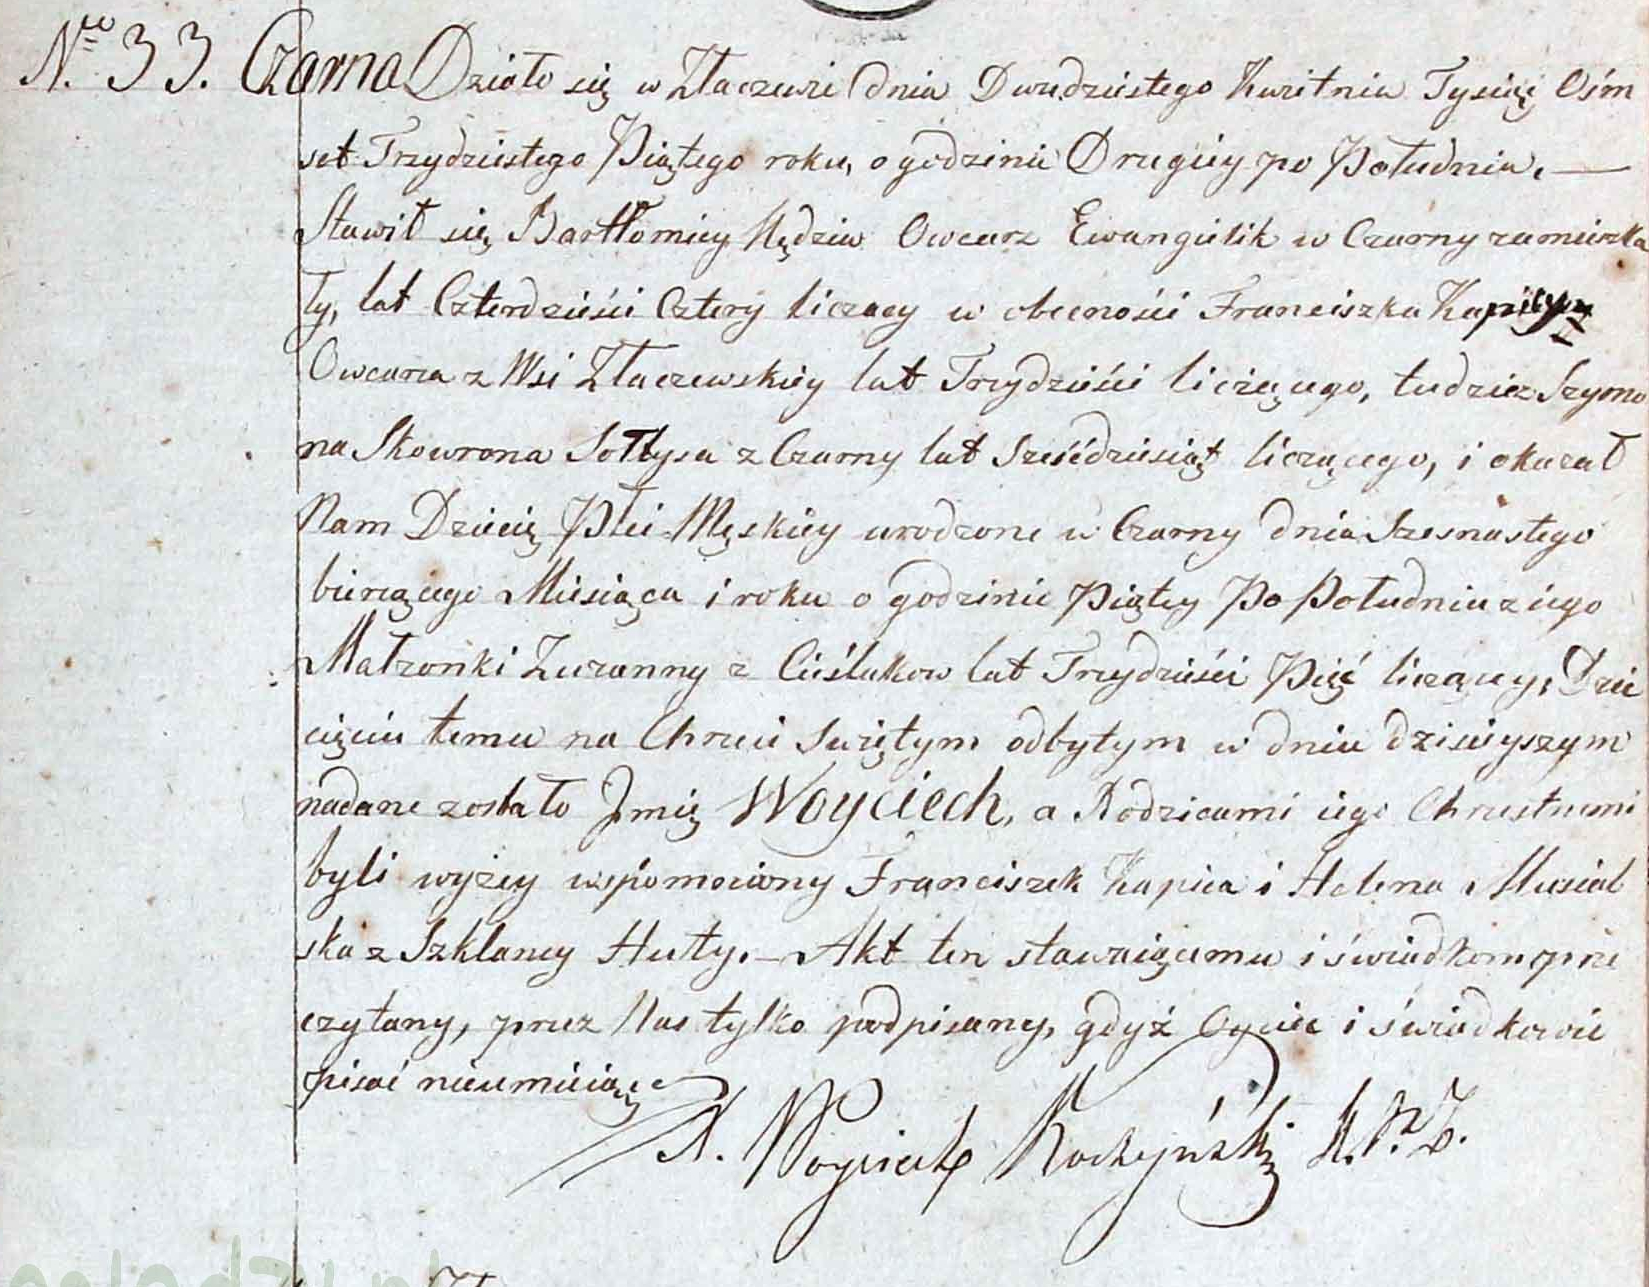 Nro 33. Czarna Działo się w Złaczewie dnia Dwudziestego Kwietnia Tysiąc Ośm
set Trzydziestego Piątego roku, o godzinie Drugiey po Południu. —
Stawił się Bartłomiey Nędza Owcarz Ewangielik w Czarny zamieszka
ły, lat Czterdzieści Cztery liczący w obecności Franciszka Kapicy
Owcarza z Wsi Złaczewskiey lat Trzydzieści liczącego, tudzież Szymo
na Skowrona Sołtysa z Czarny lat Sześćdziesiąt liczącego, i okazał
Nam Dziecię Płci Męskiey urodzone w Czarny dnia Szesnastego
bieżącego Miesiąca i roku o godzinie Piątey Po Południu z iego
Małżonki Zuzanny z Cieślukow lat Trzydzieści Pięć liczącey, Dzie
cięciu temu na Chrzcie Świętym odbytym w dniu dzisieyszym
nadane zostało Jmię Woyciech, a Rodzicami iego Chrzestnemi
byli wyżey wspomniony Franciszek Kapica i Helena Musial
ska z Szklaney Huty. — Akt ten stawaiącemu i świadkom prze
czytany, przez Nas tylko podpisany, gdyż Oyciec i świadkowie
pisać nieumieią
X. Woyciech K.P.Z.